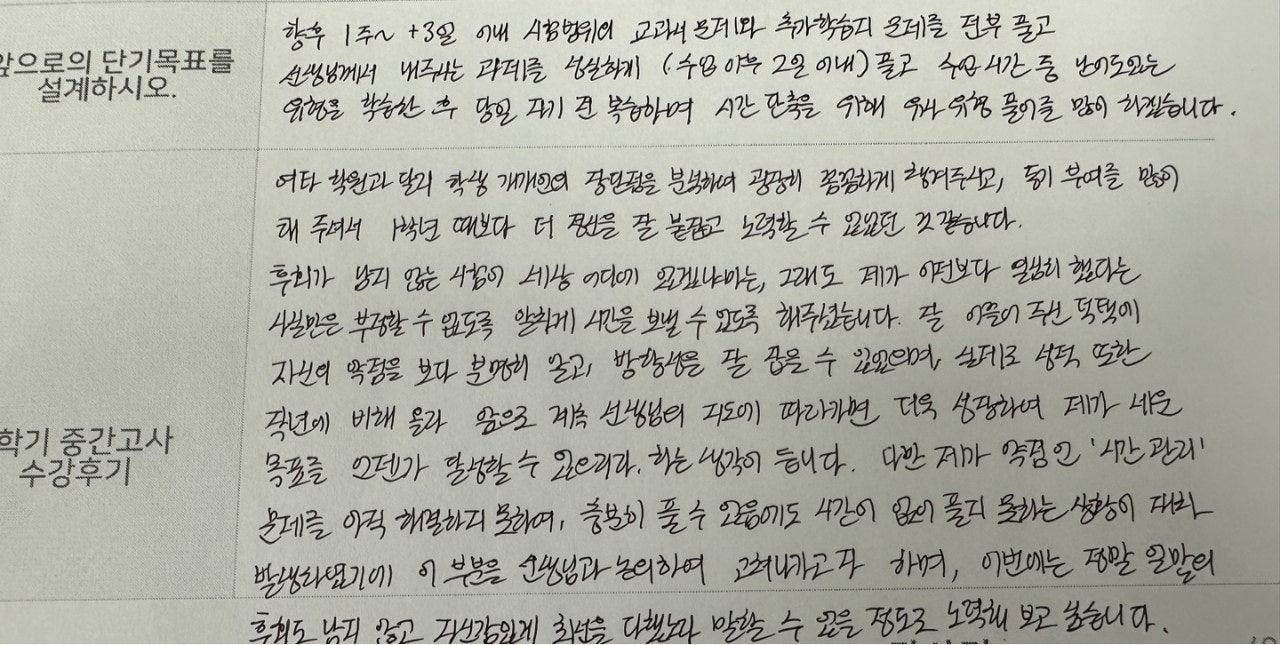 앞으로의 단기목표를
설계하시오.
향후 1주~ +3일 이내 시험범위의 교과서 문제와 추가학습지 문제를 전부 풀고
선생님께서 내주시는 과제를 성실하게 (수업 이후 2일 이내) 풀고 수업 시간 중 난이도있는
유형을 학습한 후 당일 자기 전 복습하며 시간 단축을 위해 유사 유형 풀이를 많이 하겠습니다.
학기 중간고사
수강후기
여타 학원과 달리 학생 개개인의 장단점을 분석하여 굉장히 꼼꼼하게 챙겨주시고, 동기 부여를 많이
해 주셔서 1학년 때보다 더 정신을 잘 붙잡고 노력할 수 있었던 것 같습니다.
후회가 남지 않는 시험이 세상 어디에 있겠냐마는, 그래도 제가 이전보다 열심히 했다는
사실만은 부정할 수 없도록 알차게 시간을 보낼 수 있도록 해주셨습니다. 잘 이끌어 주신 덕택에
자신의 약점을 보다 분명히 알고, 방향성을 잘 잡을 수 있었으며, 실제로 성적 또한
작년에 비해 올라 앞으로 계속 선생님의 지도에 따라가면 더욱 성장하여 제가 세운
목표를 언젠가 달성할 수 있으리라. 하는 생각이 듭니다. 다만 제가 약점인 '시간 관리'
문제를 아직 해결하지 못하여, 충분히 풀 수 있음에도 시간이 없어 풀지 못하는 상황이
발생하였기에 이 부분을 선생님과 논의하여 고쳐나가고자 하며, 이번에는 정말 일말의
후회도 남지 않고 자신감있게 최선을 다했노라 말할 수 있을 정도로 노력해 보고 싶습니다.